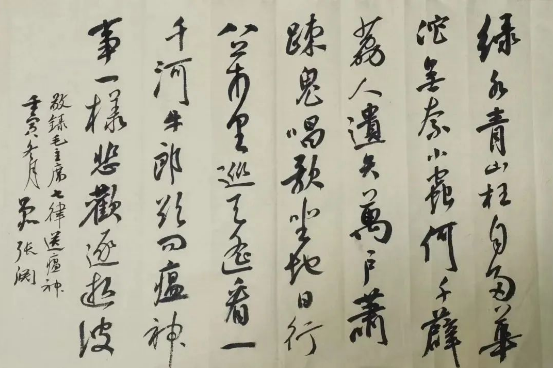 绿水青山枉自多華
佗無奈小蟲何千薜
荔人遺矢萬戶蕭
踈鬼唱歌坐地日行
八万里巡天遥看一
千河牛郎欲问瘟神
事一樣悲歡逐逝波
敬録毛主席七律送瘟神
壬寅冬月 张